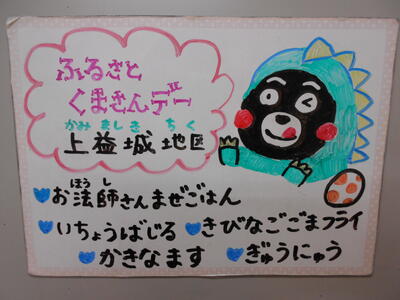 ふるさと
くまさんデー
かみましき ちく
上益城地区
ほうし
お法師さんまぜごはん
いちょうばじる きびなごごまフライ
かきなます ぎゅうにゅう